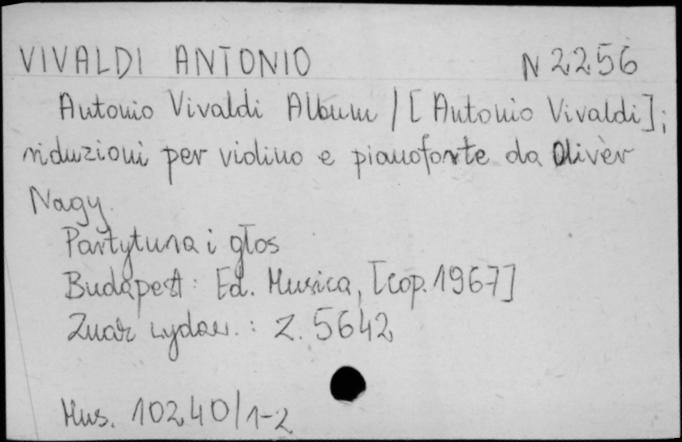 VIVALDI ANTONIO N 2256
Antonio Vivaldi Album / [Antonio Vivaldi];
riduzioni per violino e pianoforte da Olivèr
Nagy.
Partytura i głos
Budapest: Ed. Musica, [cop. 1967]
Znak wydaw.: Z. 5642
Mus. 10240/1-2